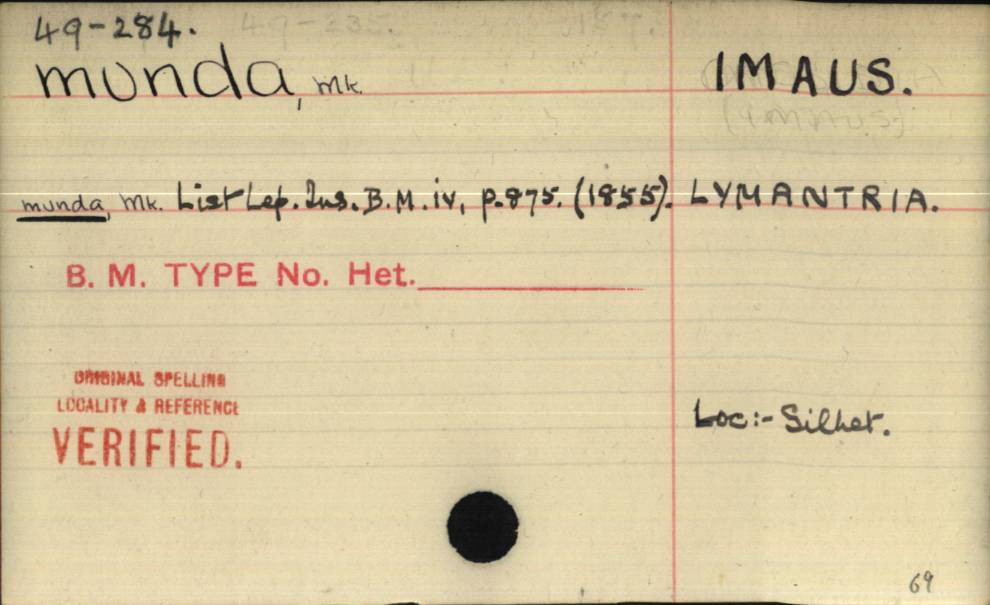 49-284.
munda, Mk. IMAUS.
munda, Mk. List Lep. Ins. B.M. iv, p.875. (1855). LYMANTRIA.
B. M. TYPE No. Het.
ORIGINAL SPELLING
LOCALITY & REFERENCE
VERIFIED.
Loc:- Silhet.
69